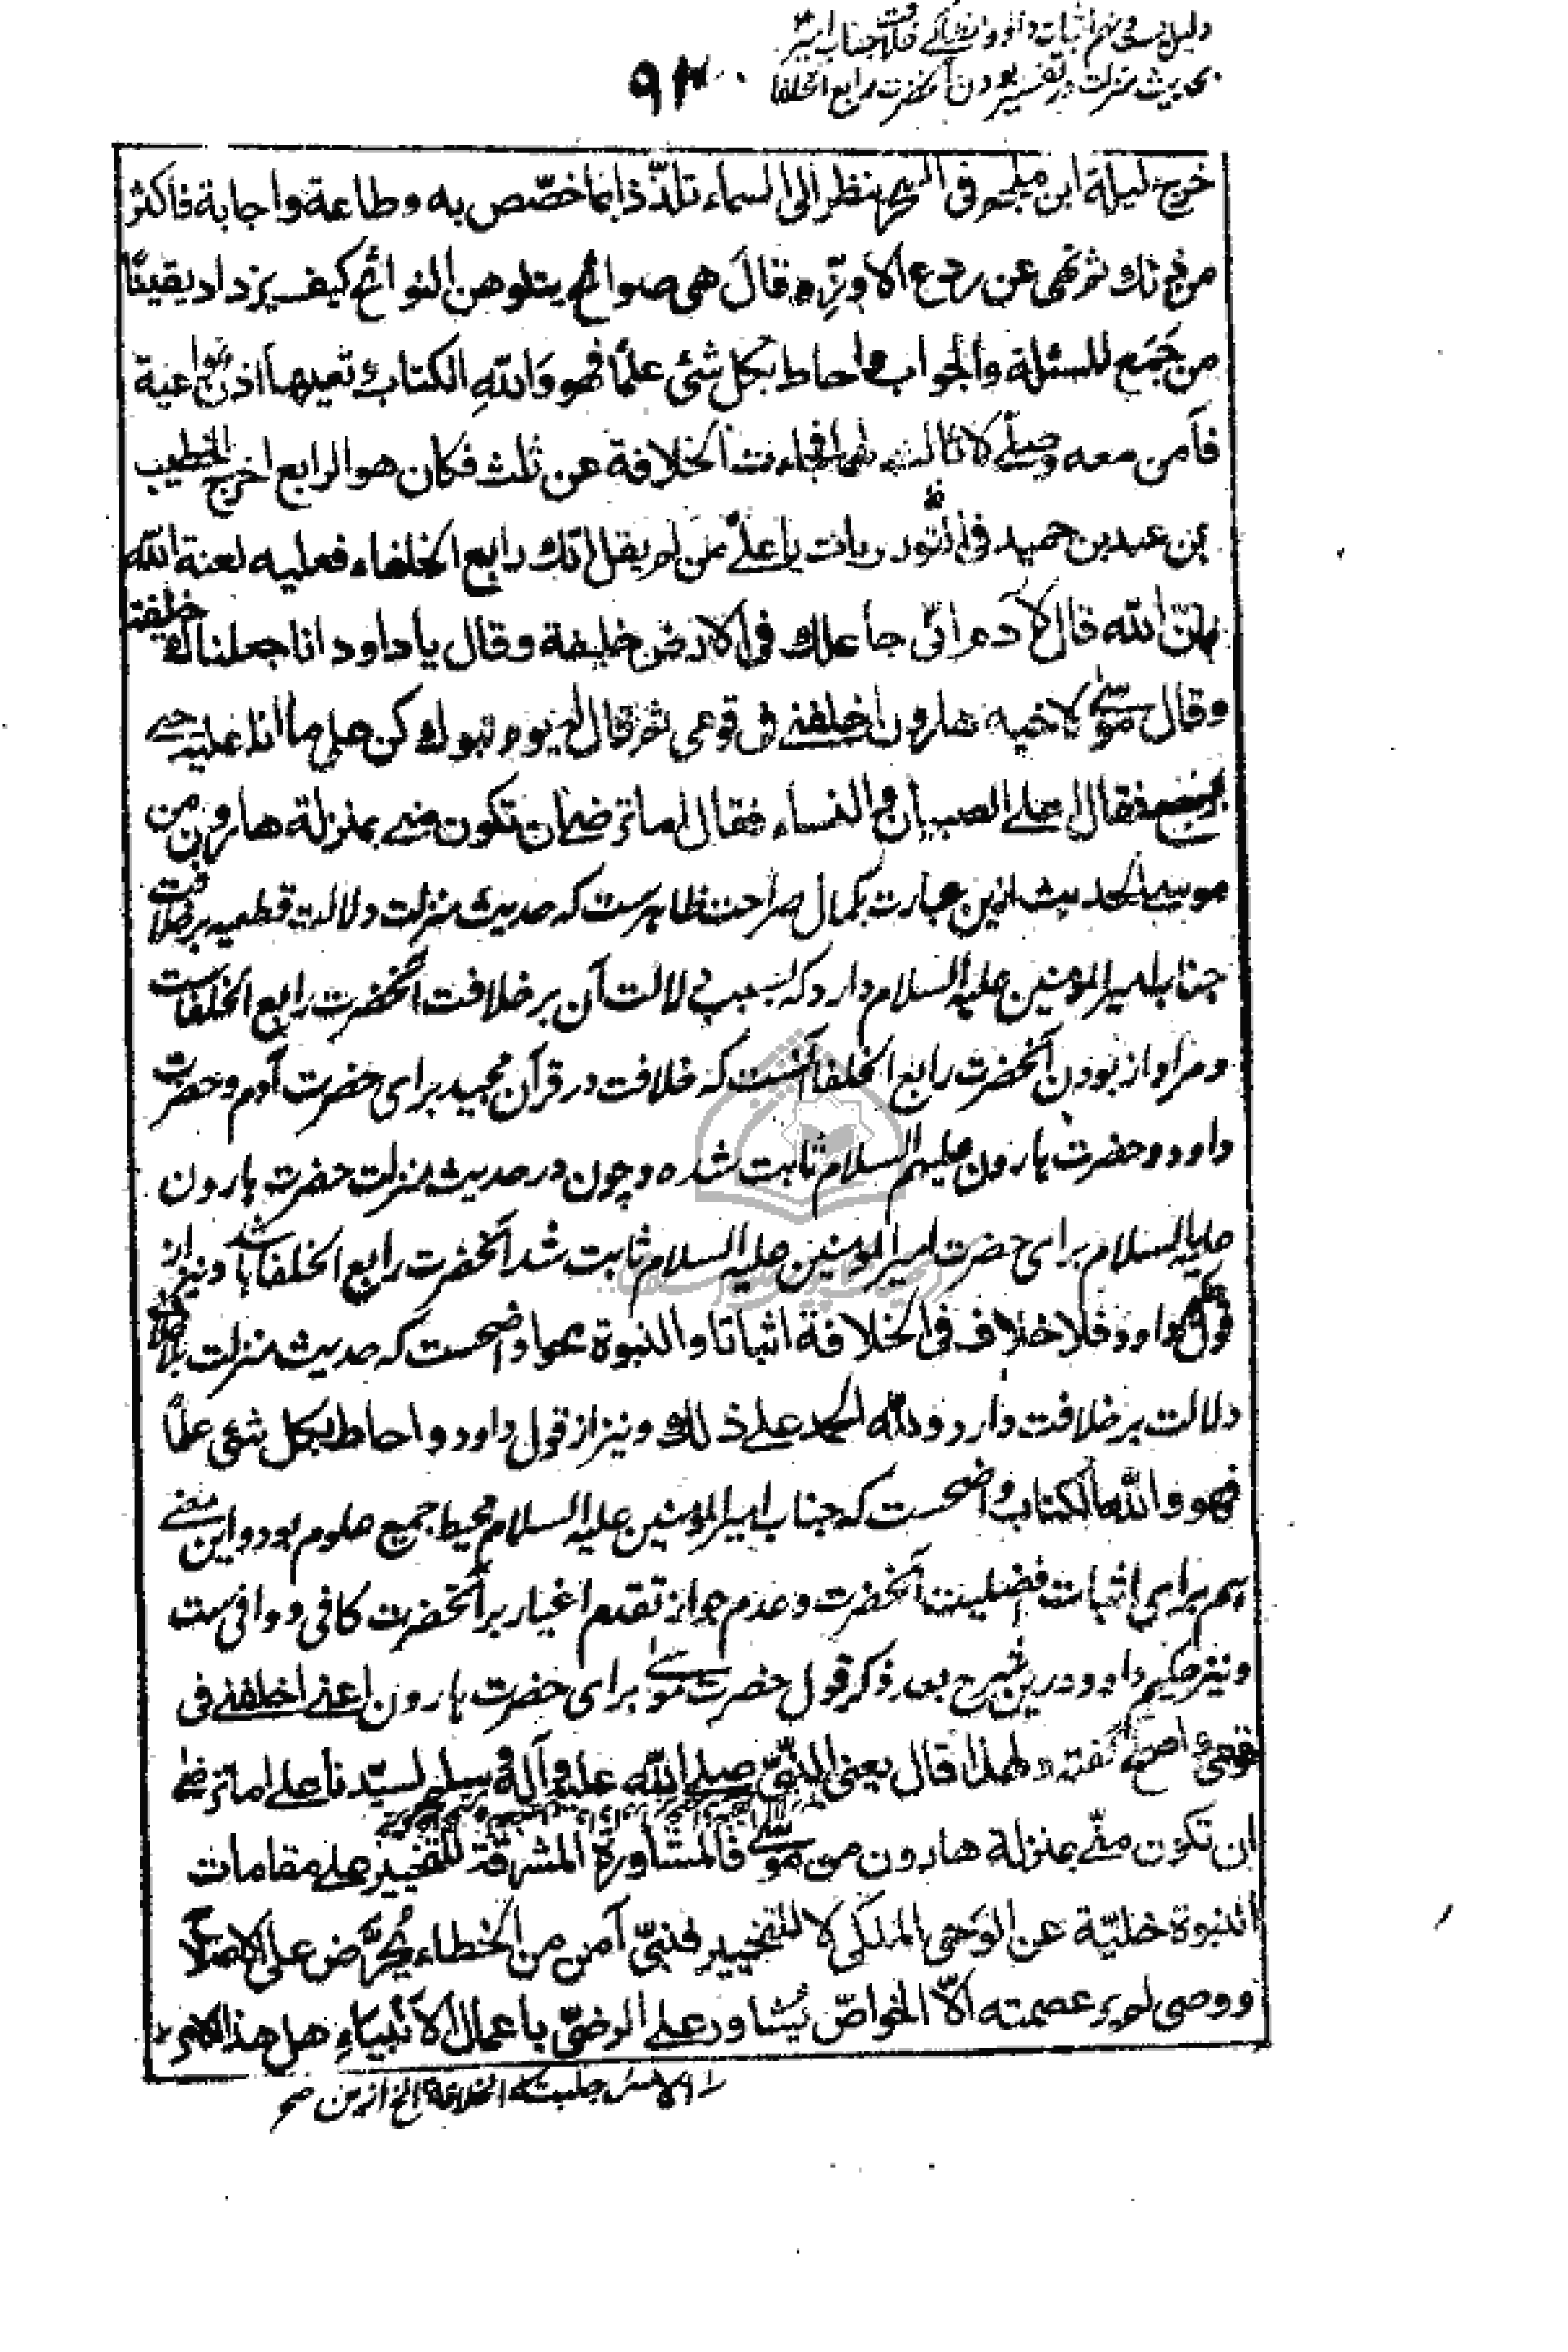 دلیل سی و نهم اثبات داود خلافت جناب امیر
بحدیث منزلت در تفسیر بودن آنحضرت رابع الخلفا
٩٣٠
خرج ليلة ابن ملجم فى السحر ينظر الى السماء تلذّذا بما خصّص به وطاعة واجابة فاكثر
من ذلك ثم نهى عن ردع الاوزّ وقال هى صوائح يتلوهن النوائح كيف يزداد يقينًا
من جَمَع للسئلة والجواب واحاط بكل شئ علمًا فهو وَاللهِ الكتاب وتعيها اذن واعية
فآمن معه وصلّى لا ثالث لهما فجاءت الخلافة عن ثلث فكان هو الرابع اخرج الخطيب
بن عبد بن حميد فى يا علىّ من لم يقل انك رابع الخلفاء فعليه لعنة الله
بانّ الله قال لآدم انّى جاعلك فى الارض خليفة وقال يا داود انا جعلناك خليفة
وقال موسى لاخيه هارون اخلفنى فى قومى ثم قال له يوم تبوك كن على ما انا عليه حتى
فقال على الصبيان والنساء فقال اما ترضى ان تكون منى بمنزلة هارون من
موسى الحديث ازين عبارت بكمال صراحت ظاهرست كه حديث منزلت دلالت قطعيه بر خلافت
جناب امير المومنين عليه السلام دارد كه بسبب دلالت آن بر خلافت آنحضرت رابع الخلفاست
و مراد از بودن آنحضرت رابع الخلفا آنست كه خلافت در قرآن مجيد براى حضرت آدم و حضرت
داود و حضرت هارون عليهم السلام ثابت شده و چون در حديث منزلت حضرت هارون
عليه السلام براى حضرت امير المومنين عليه السلام ثابت شد آنحضرت رابع الخلفا باشد و نيز از
قول داود فلا خلاف فى الخلافة اثباتا والنبوة محوا واضحست كه حديث منزلت بلا خلاف
دلالت بر خلافت دارد ولله الحمد على ذلك و نيز از قول داود واحاط بكل شئى علمًا
فهو والله الكتاب واضحست كه جناب امير المومنين عليه السلام محيط جميع علوم بود و اين معنى
هم براى اثبات افضليت آنحضرت و عدم جواز تقدم اغيار بر آنحضرت كافى و وافى ست
و نيز حكيم داود درين شرح بعد ذكر قول حضرت موسى براى حضرت هارون اعنى اخلفنى فى
قومى و اصلح گفته ولهذا قال يعنى النّبىّ صلى الله عليه وآله وسلم لسيّدنا على اما ترضى
ان تكون منّى بمنزلة هارون من موسى فالمشاورة المشرفة للتخيير على مقامات
النبوة خليّة عن الوَحى الملَكى لا للتخيير فنبىّ آمن من الخطاء يُحرَّض على الاصلاح
ووصى لم ير عصمته الّا الخواصّ يُشاور على الرضىّ باعمال الانبياءِ هل هذا الامر